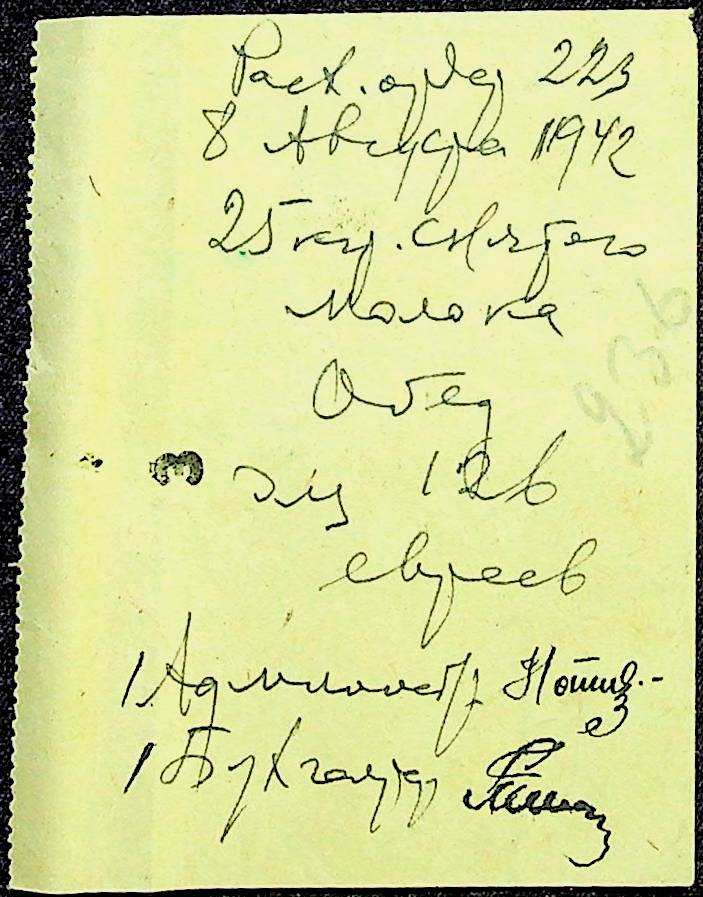 Расх. орд. 223
8 Августа 1942
25 кгр. снятого
молока
Обед
для 126
евреев
236
3
1 Администр.
1 Бухгалтер